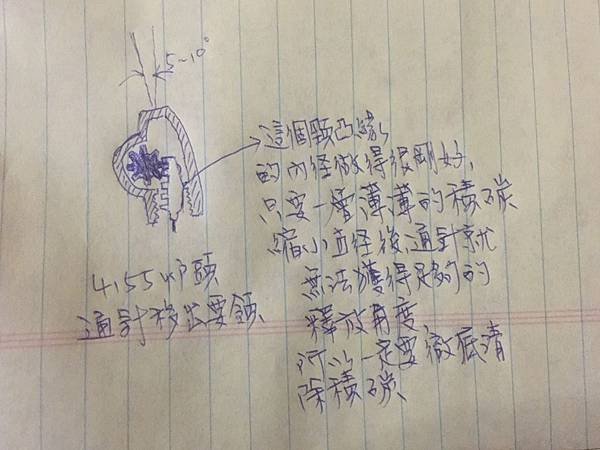 5~10°
這個頸凸緣
的內徑做得很剛好,
只要一層薄薄的積碳
縮小直徑後,通針就
無法獲得足夠的
釋放角度
所以一定要徹底清
除積碳、
4.155炉頭
通針移出要領、